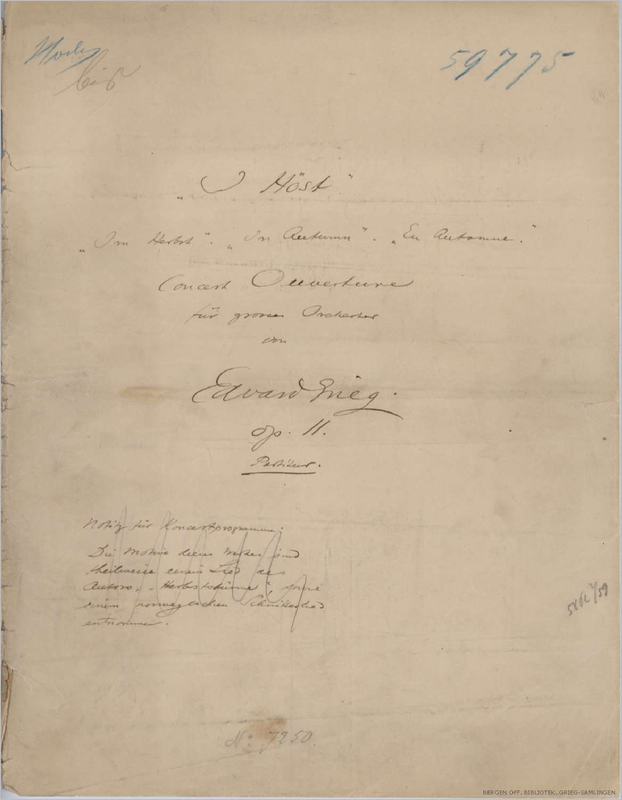 59775
„I Höst"
„Im Herbst". „In Autumn". „En Automne."
Concert Ouverture
für grosses Orchester
von
Edvard Grieg.
op. 11.
Partitur.
Notiz für Koncertprogramme:
Die Motive dieses Werkes sind
theilweise einem Lied des
Autors, „Herbststürme", sowie
einem norwegischen Schnitterlied
entnommen.
No 7250.
BERGEN OFF. BIBLIOTEK, GRIEG-SAMLINGEN